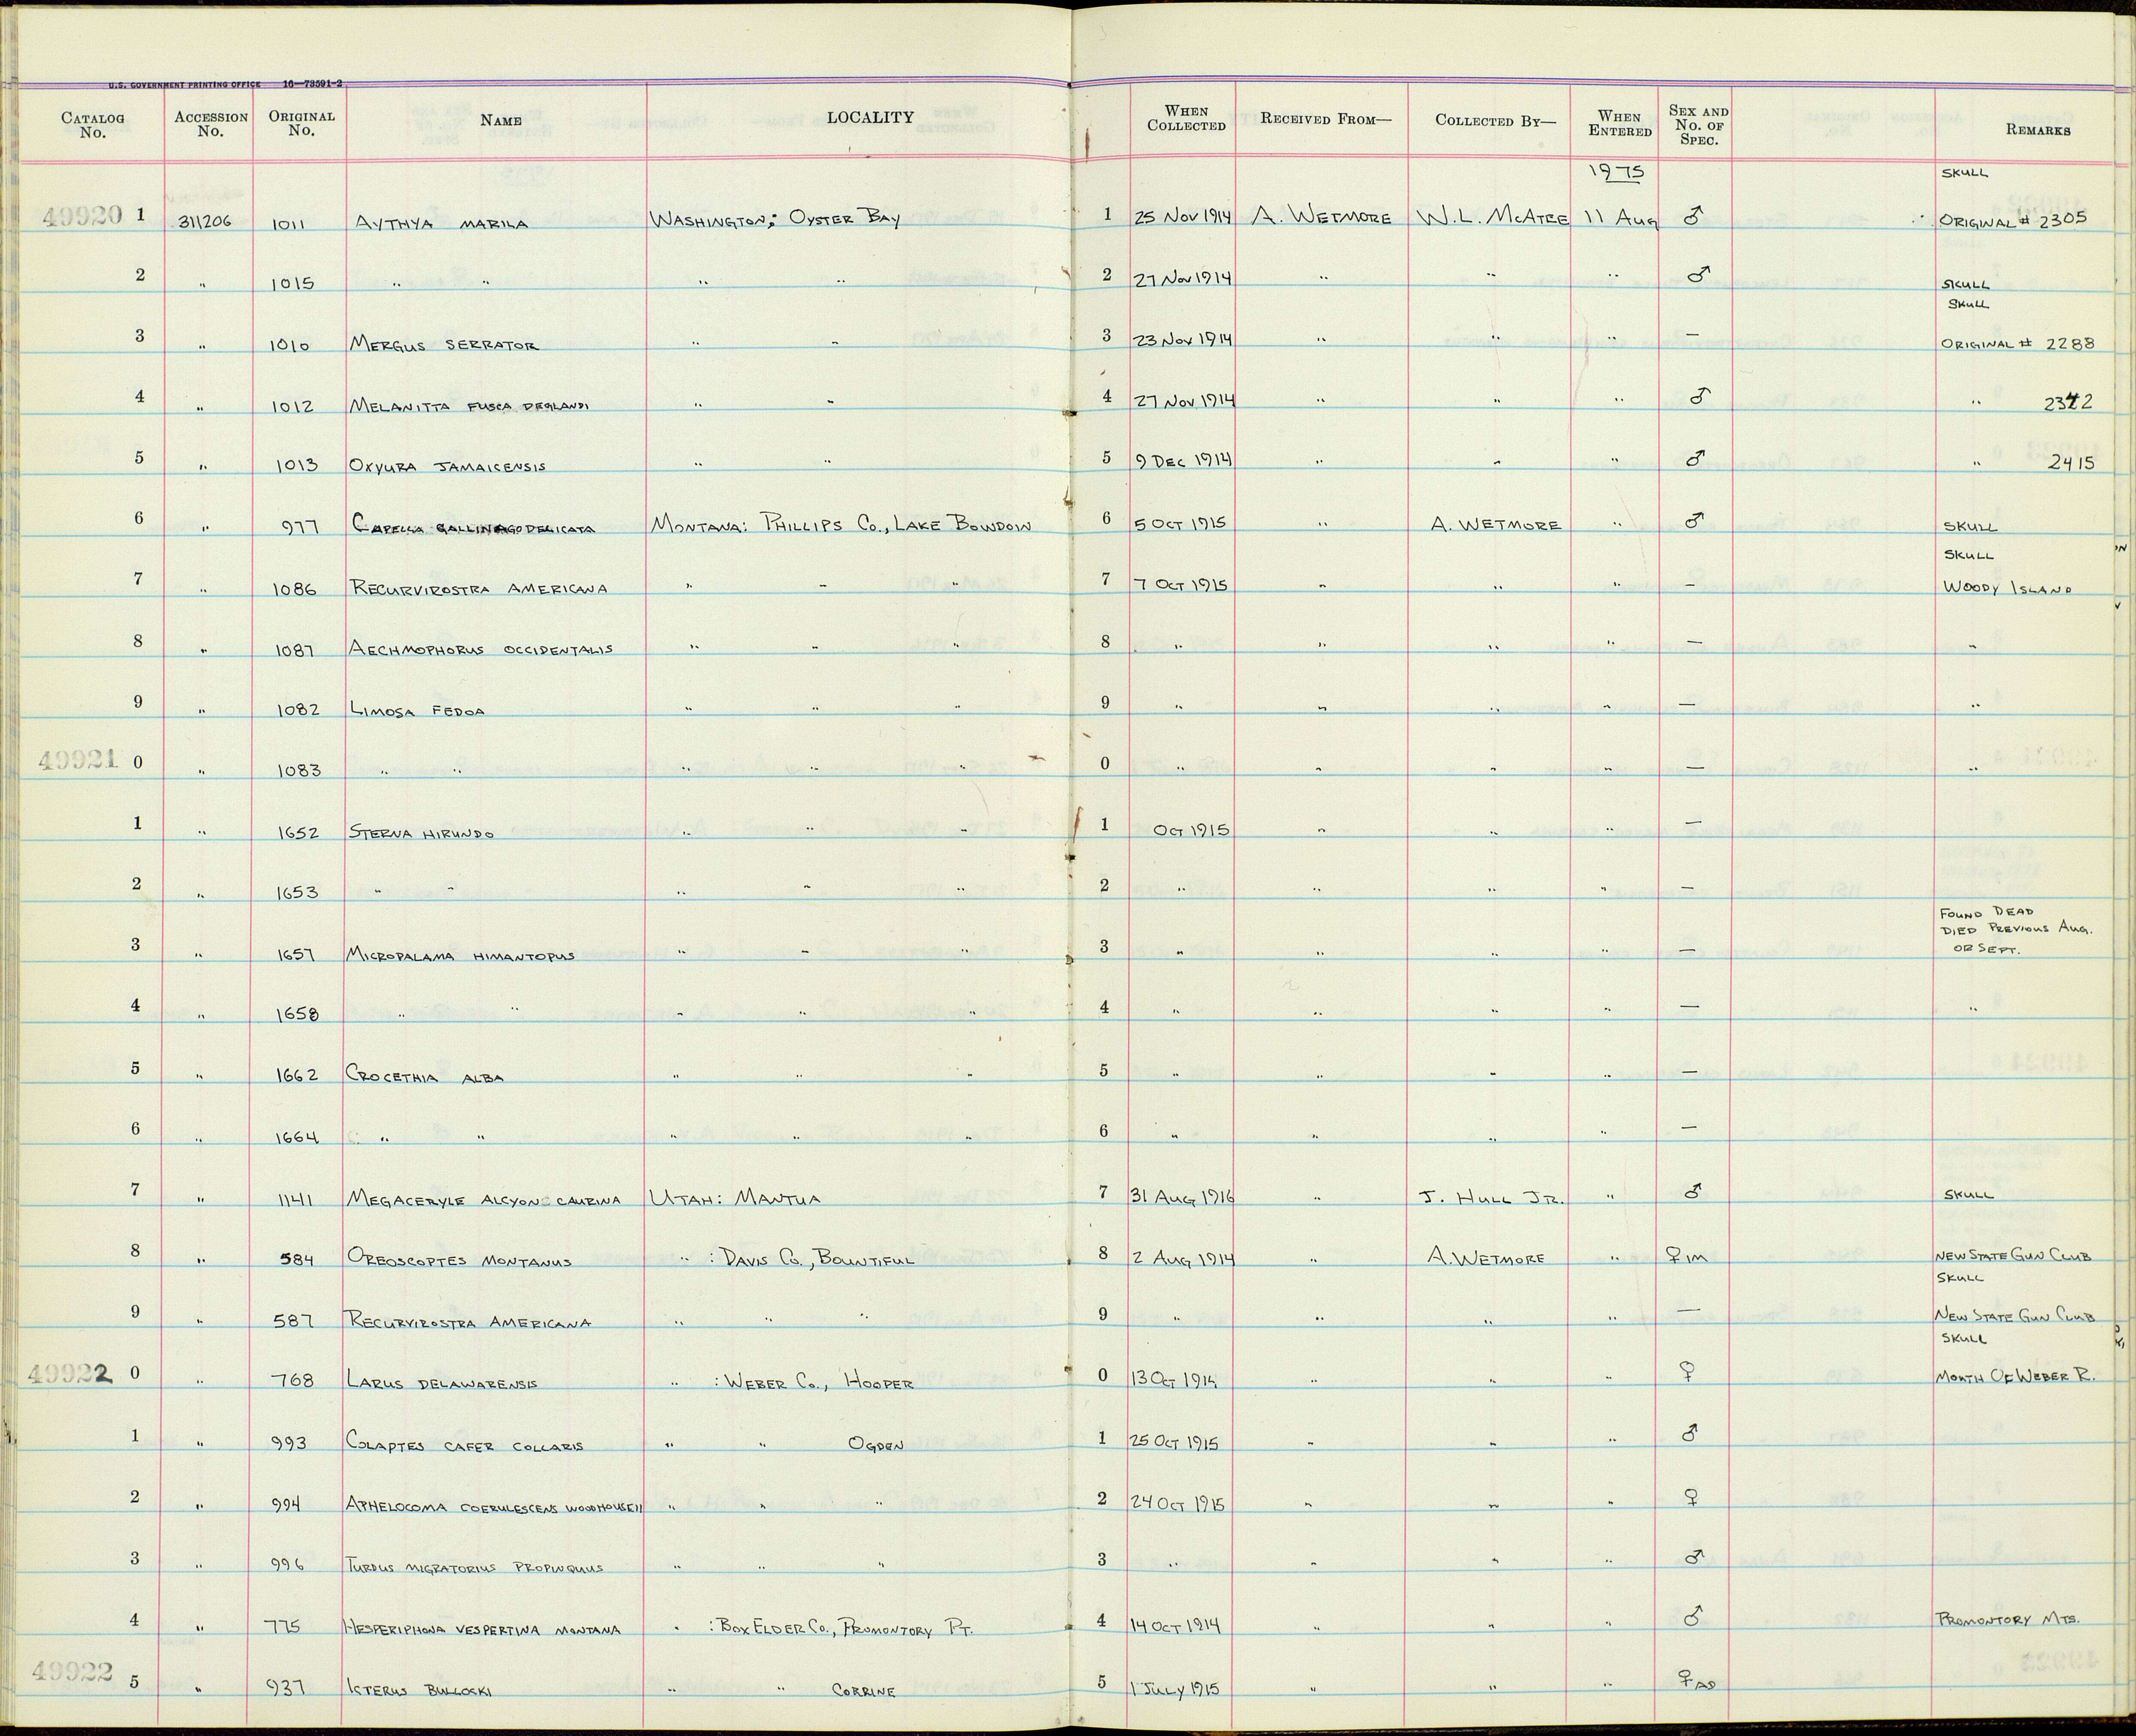 U.S. GOVERNMENT PRINTING OFFICE 16—73591-2
CATALOG No. ACCESSION No. ORIGINAL No. NAME LOCALITY WHEN COLLECTED RECEIVED FROM— COLLECTED BY— WHEN ENTERED SEX AND No. OF SPEC. REMARKS
1975 SKULL
49920 1 311206 1011 AYTHYA MARILA WASHINGTON; OYSTER BAY 1 25 NOV 1914 A. WETMORE W.L. McATEE 11 AUG ♂ ORIGINAL # 2305
2 " 1015 " " " " 2 27 NOV 1914 " " " ♂ SKULL
SKULL
3 " 1010 MERGUS SERRATOR " " 3 23 NOV 1914 " " " — ORIGINAL # 2288
4 " 1012 MELANITTA FUSCA DEGLANDI " " 4 27 NOV 1914 " " " ♂ " 2342
5 " 1013 OXYURA JAMAICENSIS " " 5 9 DEC 1914 " " " ♂ " 2415
6 " 977 CAPELLA GALLINAGO DELICATA MONTANA: PHILLIPS CO., LAKE BOWDOIN 6 5 OCT 1915 " A. WETMORE " ♂ SKULL
SKULL
7 " 1086 RECURVIROSTRA AMERICANA " " " 7 7 OCT 1915 " " " — WOODY ISLAND
8 " 1087 AECHMOPHORUS OCCIDENTALIS " " " 8 " " " " — "
9 " 1082 LIMOSA FEDOA " " " 9 " " " " — "
49921 0 " 1083 " " " " " 0 " " " " — "
1 " 1652 STERNA HIRUNDO " " " 1 OCT 1915 " " " —
2 " 1653 " " " " " 2 " " " " —
FOUND DEAD
DIED PREVIOUS AUG.
3 " 1657 MICROPALAMA HIMANTOPUS " " " 3 " " " " — OR SEPT.
4 " 1658 " " " " " 4 " " " " — "
5 " 1662 CROCETHIA ALBA " " " 5 " " " " —
6 " 1664 " " " " " 6 " " " " —
7 " 1141 MEGACERYLE ALCYON CAURINA UTAH: MANTUA 7 31 AUG 1916 " J. HULL JR. " ♂ SKULL
8 " 584 OREOSCOPTES MONTANUS " : DAVIS CO., BOUNTIFUL 8 2 AUG 1914 " A. WETMORE " ♀ IM NEW STATE GUN CLUB
SKULL
9 " 587 RECURVIROSTRA AMERICANA " " " 9 " " " " — NEW STATE GUN CLUB
SKULL
49922 0 " 768 LARUS DELAWARENSIS " : WEBER CO., HOOPER 0 13 OCT 1914 " " " ♀ MOUTH OF WEBER R.
1 " 993 COLAPTES CAFER COLLARIS " " OGDEN 1 25 OCT 1915 " " " ♂
2 " 994 APHELOCOMA COERULESCENS WOODHOUSEII " " " 2 24 OCT 1915 " " " ♀
3 " 996 TURDUS MIGRATORIUS PROPINQUUS " " " 3 " " " " ♂
4 " 775 HESPERIPHONA VESPERTINA MONTANA " : BOX ELDER CO., PROMONTORY PT. 4 14 OCT 1914 " " " ♂ PROMONTORY MTS.
49922 5 " 937 ICTERUS BULLOCKI " " CORRINE 5 1 JULY 1915 " " " ♀ AD